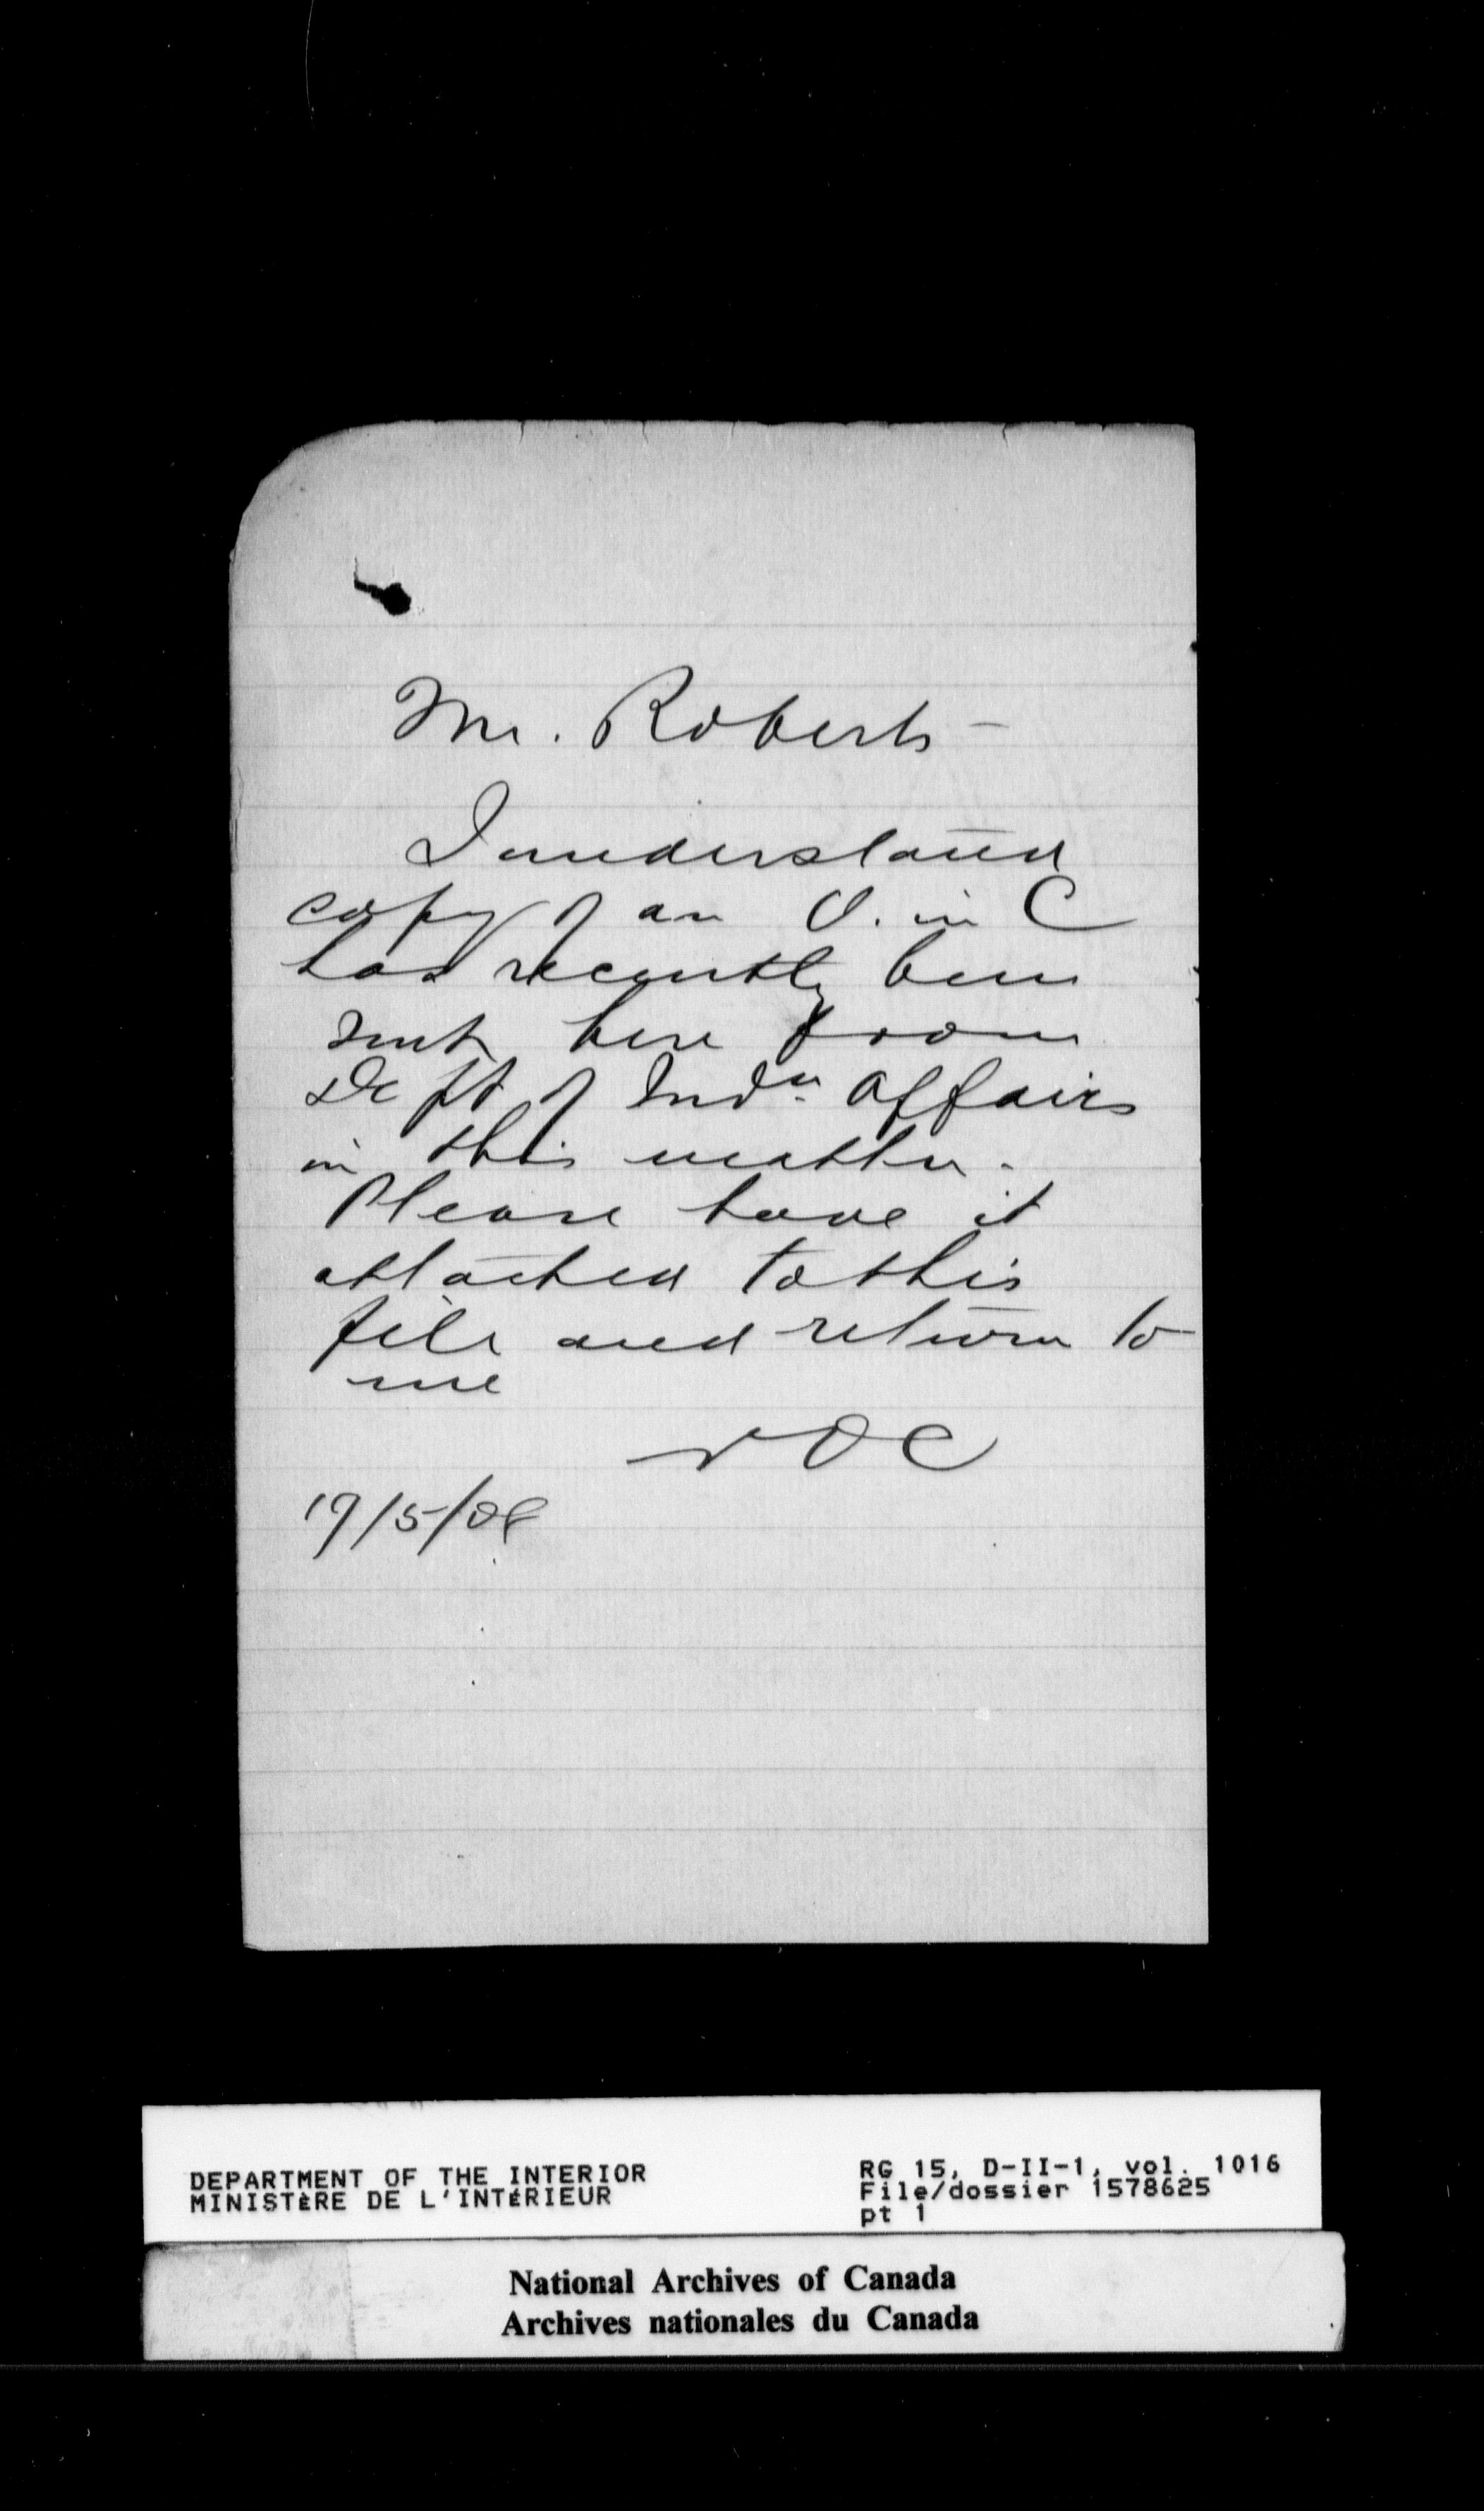 Mr. Roberts -
I understand
copy of an O. in C
has recently been
sent here from
Dept of Indn. Affairs
in this matter.
Please have it
attached to this
file and return to
me
NOC
19/5/08
DEPARTMENT OF THE INTERIOR
MINISTÈRE DE L'INTÉRIEUR
RG 15, D-II-1, vol. 1016
File/dossier 1578625
pt 1
National Archives of Canada
Archives nationales du Canada